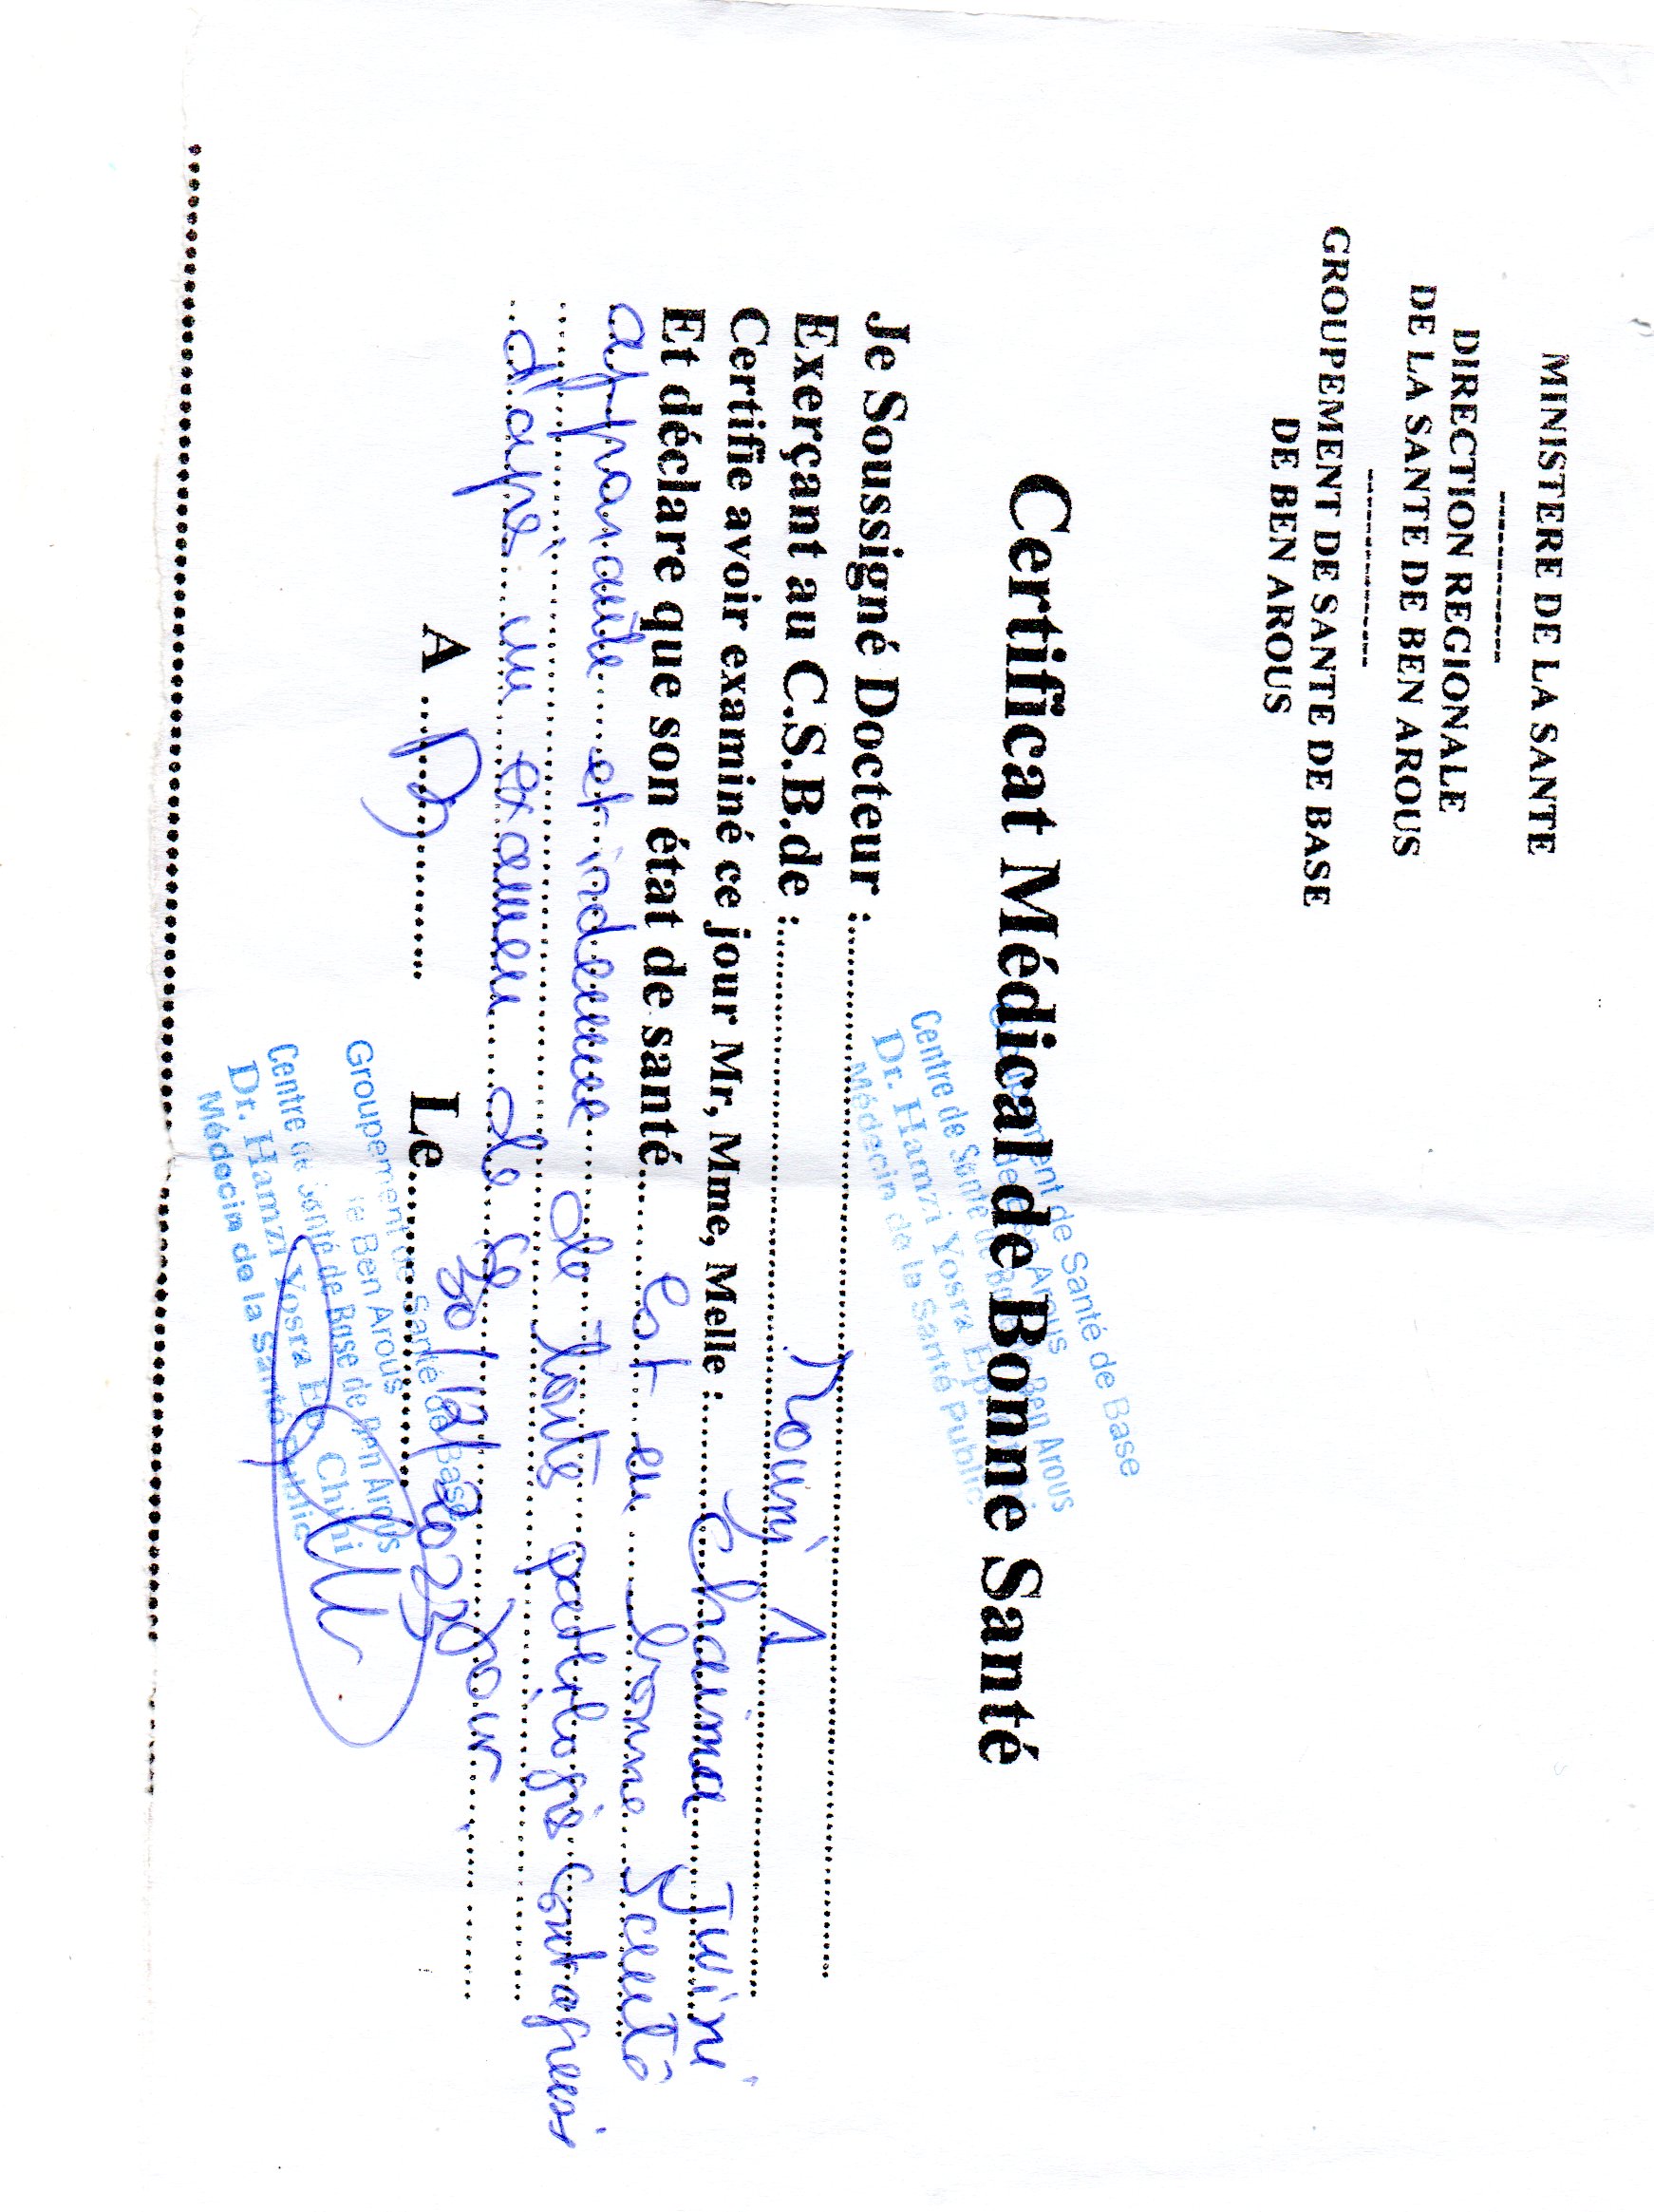 MINISTERE DE LA SANTE
------------
DIRECTION REGIONALE
DE LA SANTE DE BEN AROUS
--------------
GROUPEMENT DE SANTE DE BASE
DE BEN AROUS
Certificat Médical de Bonne Santé
Groupement de Santé de Base
de Ben Arous
Centre de Santé de Base de Ben Arous
Dr. Hamzi Yosra Ep
Médecin de la Santé Public
Je Soussigné Docteur :
Exerçant au C.S.B.de :
Certifie avoir examiné ce jour Mr, Mme, Melle : Chaima Juini
Et déclare que son état de santé est en bonne Santé
apparante et indemne de toute pathologie contagieuse
d'après un examen de ce jour
A Le 30/12/2022
Groupement de Santé de Base
de Ben Arous
Centre de Santé de Base de Ben Arous
Dr. Hamzi Yosra Ep Chihi
Médecin de la Santé Public